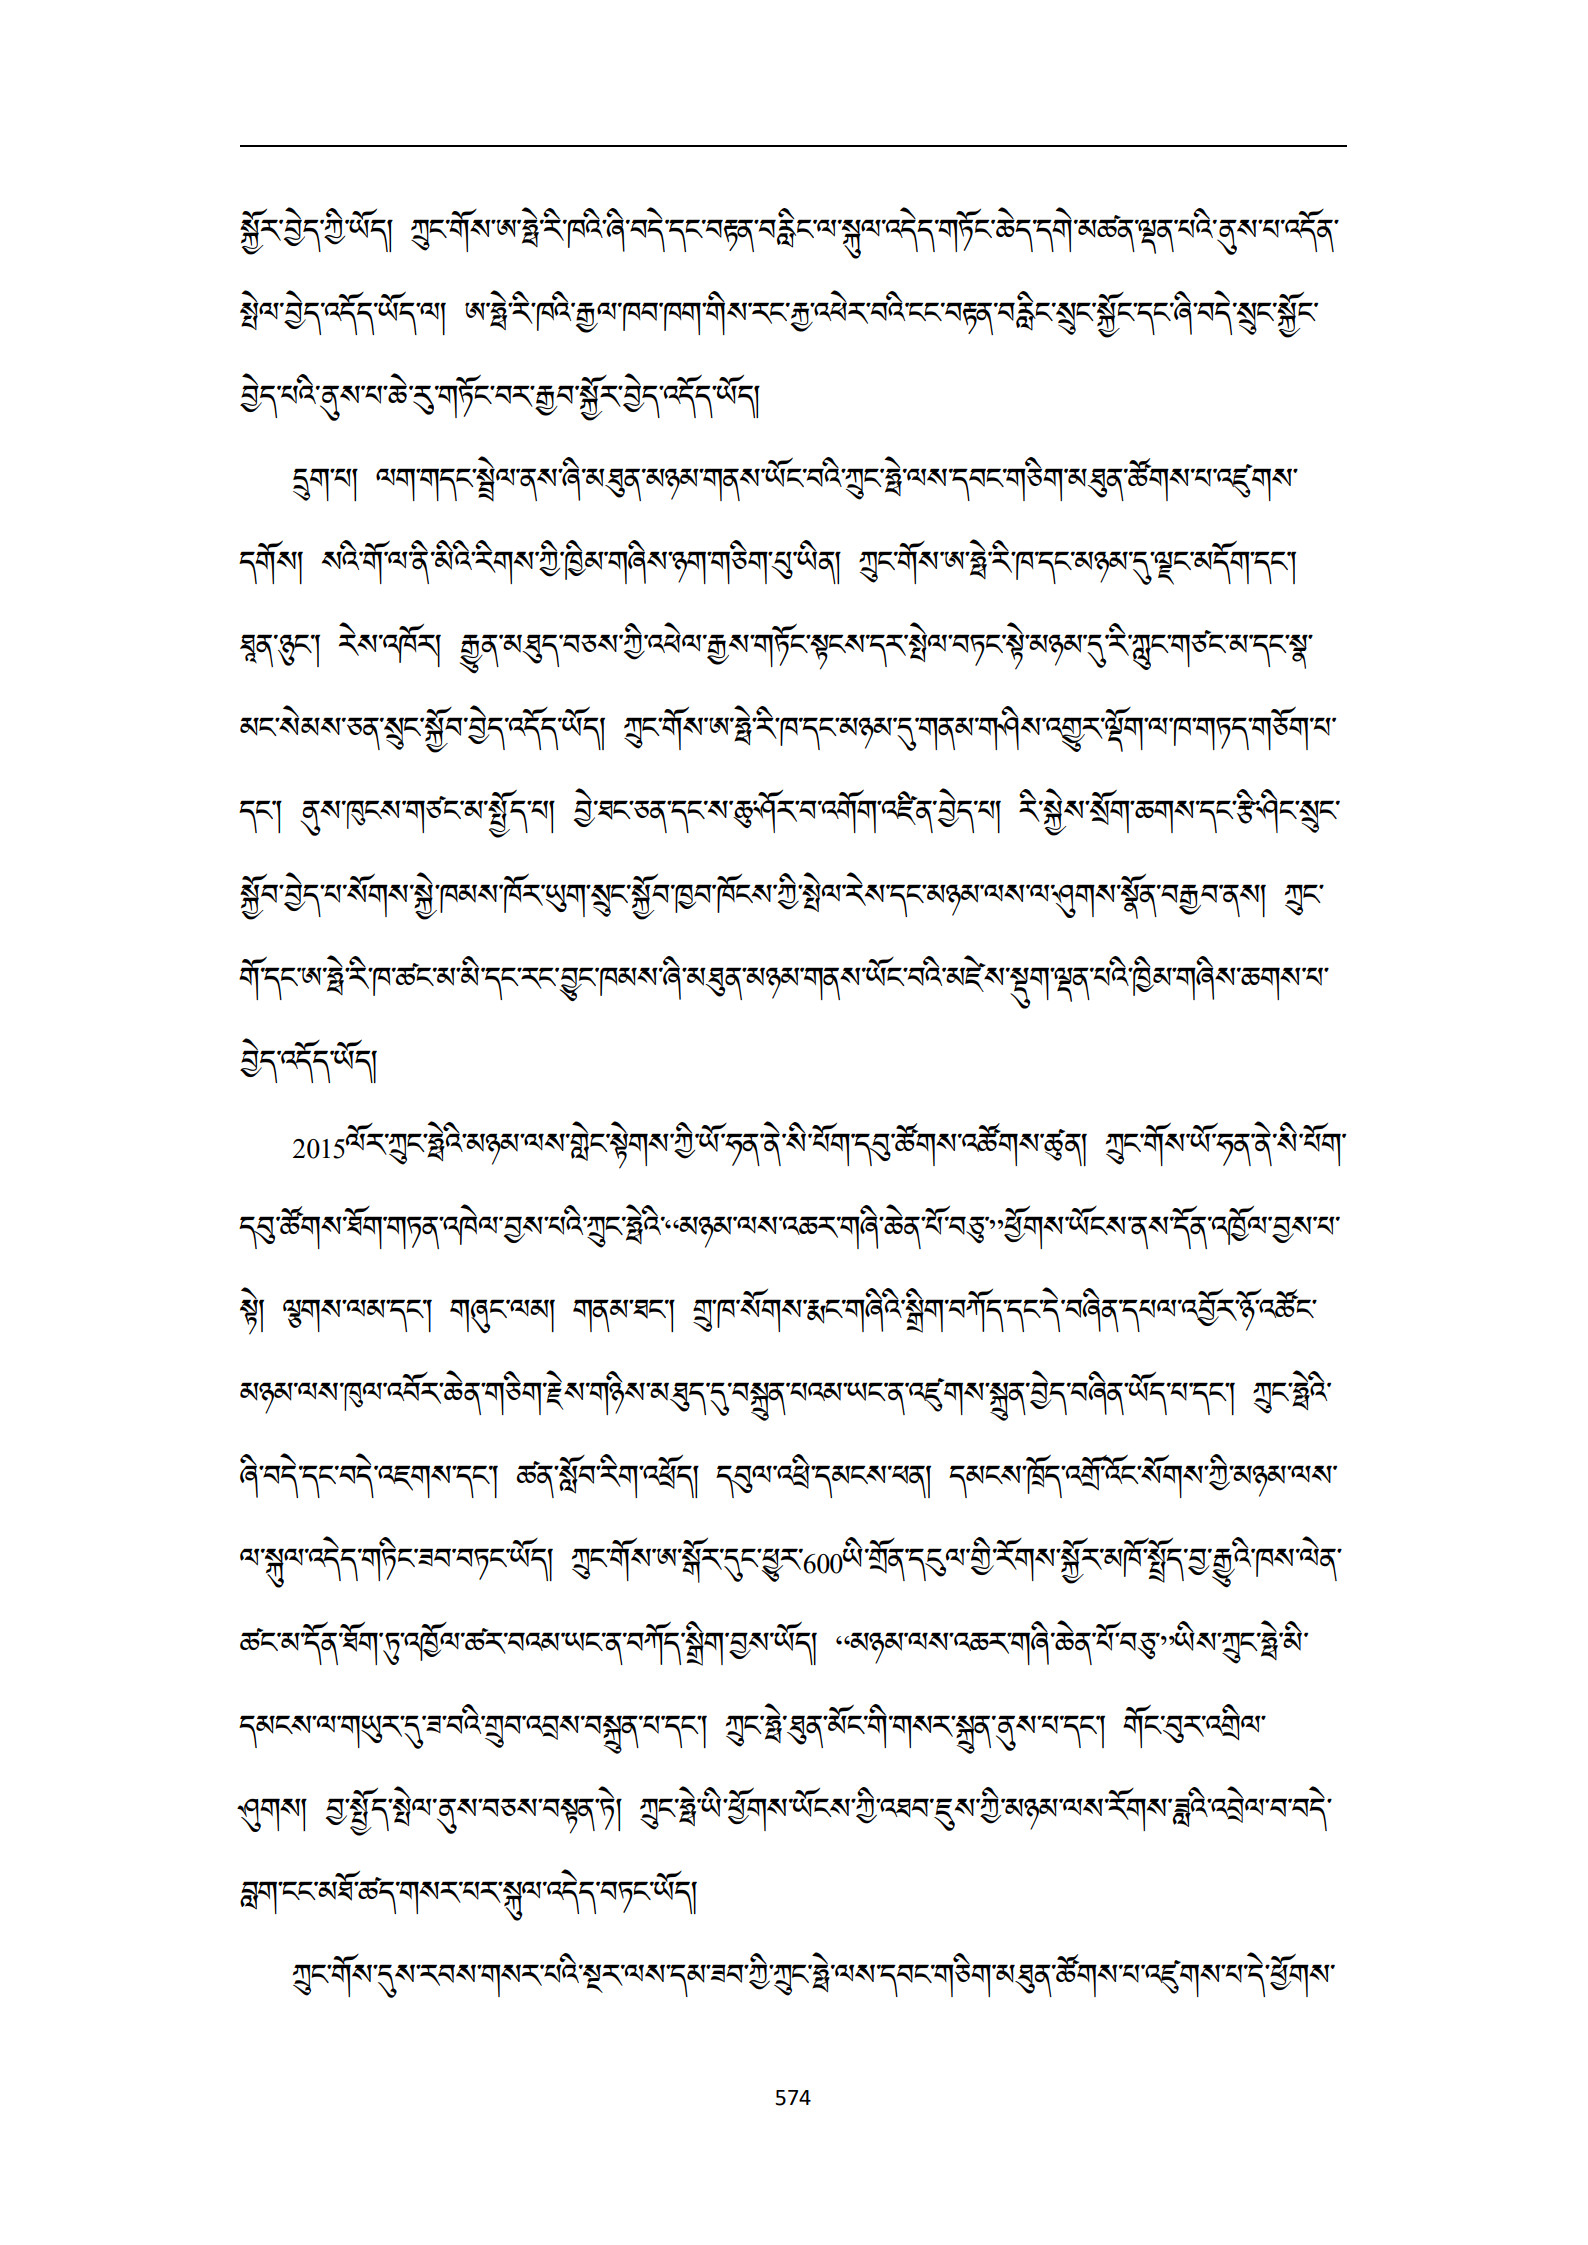 སྐྱོར་བྱེད་ཀྱི་ཡོད། ཀྲུང་གོས་ཨ་ཧྥེ་རི་ཁའི་ཞི་བདེ་དང་བརྟན་བརླིང་ལ་སྐུལ་འདེད་གཏོང་ཆེད་དགེ་མཚན་ལྡན་པའི་ནུས་པ་འདོན་
སྤེལ་བྱེད་འདོད་ཡོད་ལ། ཨ་ཧྥེ་རི་ཁའི་རྒྱལ་ཁབ་ཁག་གིས་རང་རྐྱ་འཕེར་བའི་ངང་བརྟན་བརླིང་སྲུང་སྐྱོང་དང་ཞི་བདེ་སྲུང་སྐྱོང་
བྱེད་པའི་ནུས་པ་ཆེ་རུ་གཏོང་བར་རྒྱབ་སྐྱོར་བྱེད་འདོད་ཡོད།
དྲུག་པ། ལག་གདང་སྦྲེལ་ནས་ཞི་མཐུན་མཉམ་གནས་ཡོང་བའི་ཀྲུང་ཧྥེ་ལས་དབང་གཅིག་མཐུན་ཚོགས་པ་འཛུགས་
དགོས། སའི་གོ་ལ་ནི་མིའི་རིགས་ཀྱི་ཁྱིམ་གཞིས་ཉག་གཅིག་པུ་ཡིན། ཀྲུང་གོས་ཨ་ཧྥེ་རི་ཁ་དང་མཉམ་དུ་ལྗང་མདོག་དང་།
ཐྭན་ཉུང་། རེས་འཁོར། རྒྱུན་མཐུད་བཅས་ཀྱི་འཕེལ་རྒྱས་གཏོང་སྟངས་དར་སྤེལ་བཏང་སྟེ་མཉམ་དུ་རི་ཀླུང་གཙང་མ་དང་སྣ་
མང་སེམས་ཅན་སྲུང་སྐྱོབ་བྱེད་འདོད་ཡོད། ཀྲུང་གོས་ཨ་ཧྥེ་རི་ཁ་དང་མཉམ་དུ་གནམ་གཤིས་འགྱུར་ལྡོག་ལ་ཁ་གཏད་གཅོག་པ་
དང་། ནུས་ཁུངས་གཙང་མ་སྤྱོད་པ། བྱེ་ཐང་ཅན་དང་ས་ཆུ་ཤོར་བ་འགོག་འཛིན་བྱེད་པ། རི་སྐྱེས་སྲོག་ཆགས་དང་རྩི་ཤིང་སྲུང་
སྐྱོབ་བྱེད་པ་སོགས་སྐྱེ་ཁམས་ཁོར་ཡུག་སྲུང་སྐྱོབ་ཁྱབ་ཁོངས་ཀྱི་སྤེལ་རེས་དང་མཉམ་ལས་ལ་ཤུགས་སྣོན་བརྒྱབ་ནས། ཀྲུང་
གོ་དང་ཨ་ཧྥེ་རི་ཁ་ཚང་མ་མི་དང་རང་བྱུང་ཁམས་ཞི་མཐུན་མཉམ་གནས་ཡོང་བའི་མཛེས་སྡུག་ལྡན་པའི་ཁྱིམ་གཞིས་ཆགས་པ་
བྱེད་འདོད་ཡོད།
2015ལོར་ཀྲུང་ཧྥེའི་མཉམ་ལས་གླེང་སྟེགས་ཀྱི་ཡོ་ཧན་ནེ་སི་པོག་དབུ་ཚོགས་འཚོགས་ཚུན། ཀྲུང་གོས་ཡོ་ཧན་ནེ་སི་པོག་
དབུ་ཚོགས་ཐོག་གཏན་འཁེལ་བྱས་པའི་ཀྲུང་ཧྥེའི་“མཉམ་ལས་འཆར་གཞི་ཆེན་པོ་བཅུ་”ཕྱོགས་ཡོངས་ནས་དོན་འཁྱོལ་བྱས་པ་
སྟེ། ལྕགས་ལམ་དང་། གཞུང་ལམ། གནམ་ཐང་། གྲུ་ཁ་སོགས་རྨང་གཞིའི་སྒྲིག་བཀོད་དང་དེ་བཞིན་དཔལ་འབྱོར་ཉོ་འཚོང་
མཉམ་ལས་ཁུལ་འབོར་ཆེན་གཅིག་རྗེས་གཉིས་མཐུད་དུ་བསྐྲུན་པའམ་ཡང་ན་འཛུགས་སྐྲུན་བྱེད་བཞིན་ཡོད་པ་དང་། ཀྲུང་ཧྥེའི་
ཞི་བདེ་དང་བདེ་འཇགས་དང་། ཚན་སློབ་རིག་འཕྲོད། དབུལ་འཕྲི་དམངས་ཕན། དམངས་ཁྲོད་འགྲོ་འོང་སོགས་ཀྱི་མཉམ་ལས་
ལ་སྐུལ་འདེད་གཏིང་ཟབ་བཏང་ཡོད། ཀྲུང་གོས་ཨ་སྒོར་དུང་ཕྱུར་600ཡི་གྲོན་དངུལ་གྱི་རོགས་སྐྱོར་མཁོ་སྤྲོད་བྱ་རྒྱུའི་ཁས་ལེན་
ཚང་མ་དོན་ཐོག་ཏུ་འཁྱོལ་ཚར་བའམ་ཡང་ན་བཀོད་སྒྲིག་བྱས་ཡོད། “མཉམ་ལས་འཆར་གཞི་ཆེན་པོ་བཅུ་”ཡིས་ཀྲུང་ཧྥེ་མི་
དམངས་ལ་གཡུར་དུ་ཟ་བའི་གྲུབ་འབྲས་བསྐྲུན་པ་དང་། ཀྲུང་ཧྥེ་ཐུན་མོང་གི་གསར་སྐྲུན་ནུས་པ་དང་། གོང་བུར་འགྲིལ་
ཤུགས། བྱ་སྤྱོད་སྤེལ་ནུས་བཅས་བསྟན་ཏེ། ཀྲུང་ཧྥེ་ཡི་ཕྱོགས་ཡོངས་ཀྱི་འཐབ་ཇུས་ཀྱི་མཉམ་ལས་རོགས་ཟླའི་འབྲེལ་བ་བདེ་
བླག་ངང་མཐོ་ཚད་གསར་པར་སྐུལ་འདེད་བཏང་ཡོད།
ཀྲུང་གོས་དུས་རབས་གསར་པའི་སྔར་ལས་དམ་ཟབ་ཀྱི་ཀྲུང་ཧྥེ་ལས་དབང་གཅིག་མཐུན་ཚོགས་པ་འཛུགས་པ་དེ་ཕྱོགས་
574